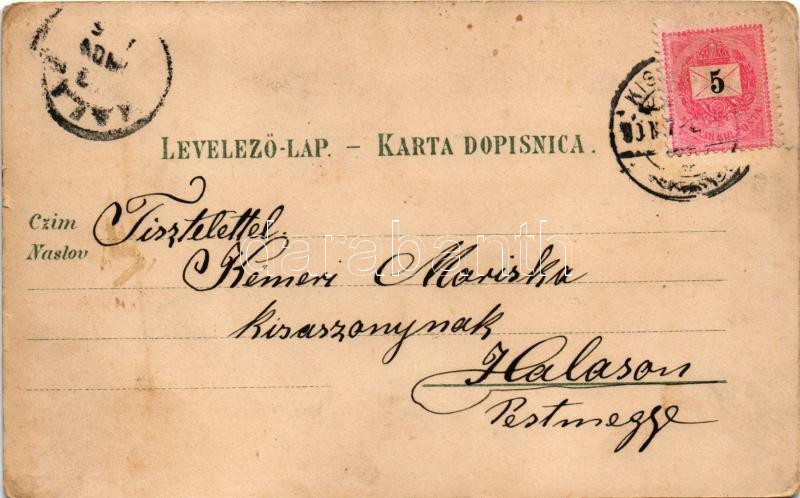 5
LEVELEZŐ-LAP. – KARTA DOPISNICA.
Czim
Naslov
Tisztelettel
Kemeri Mariska
kisaszonynak
Halason
Pestmegge
darabanth